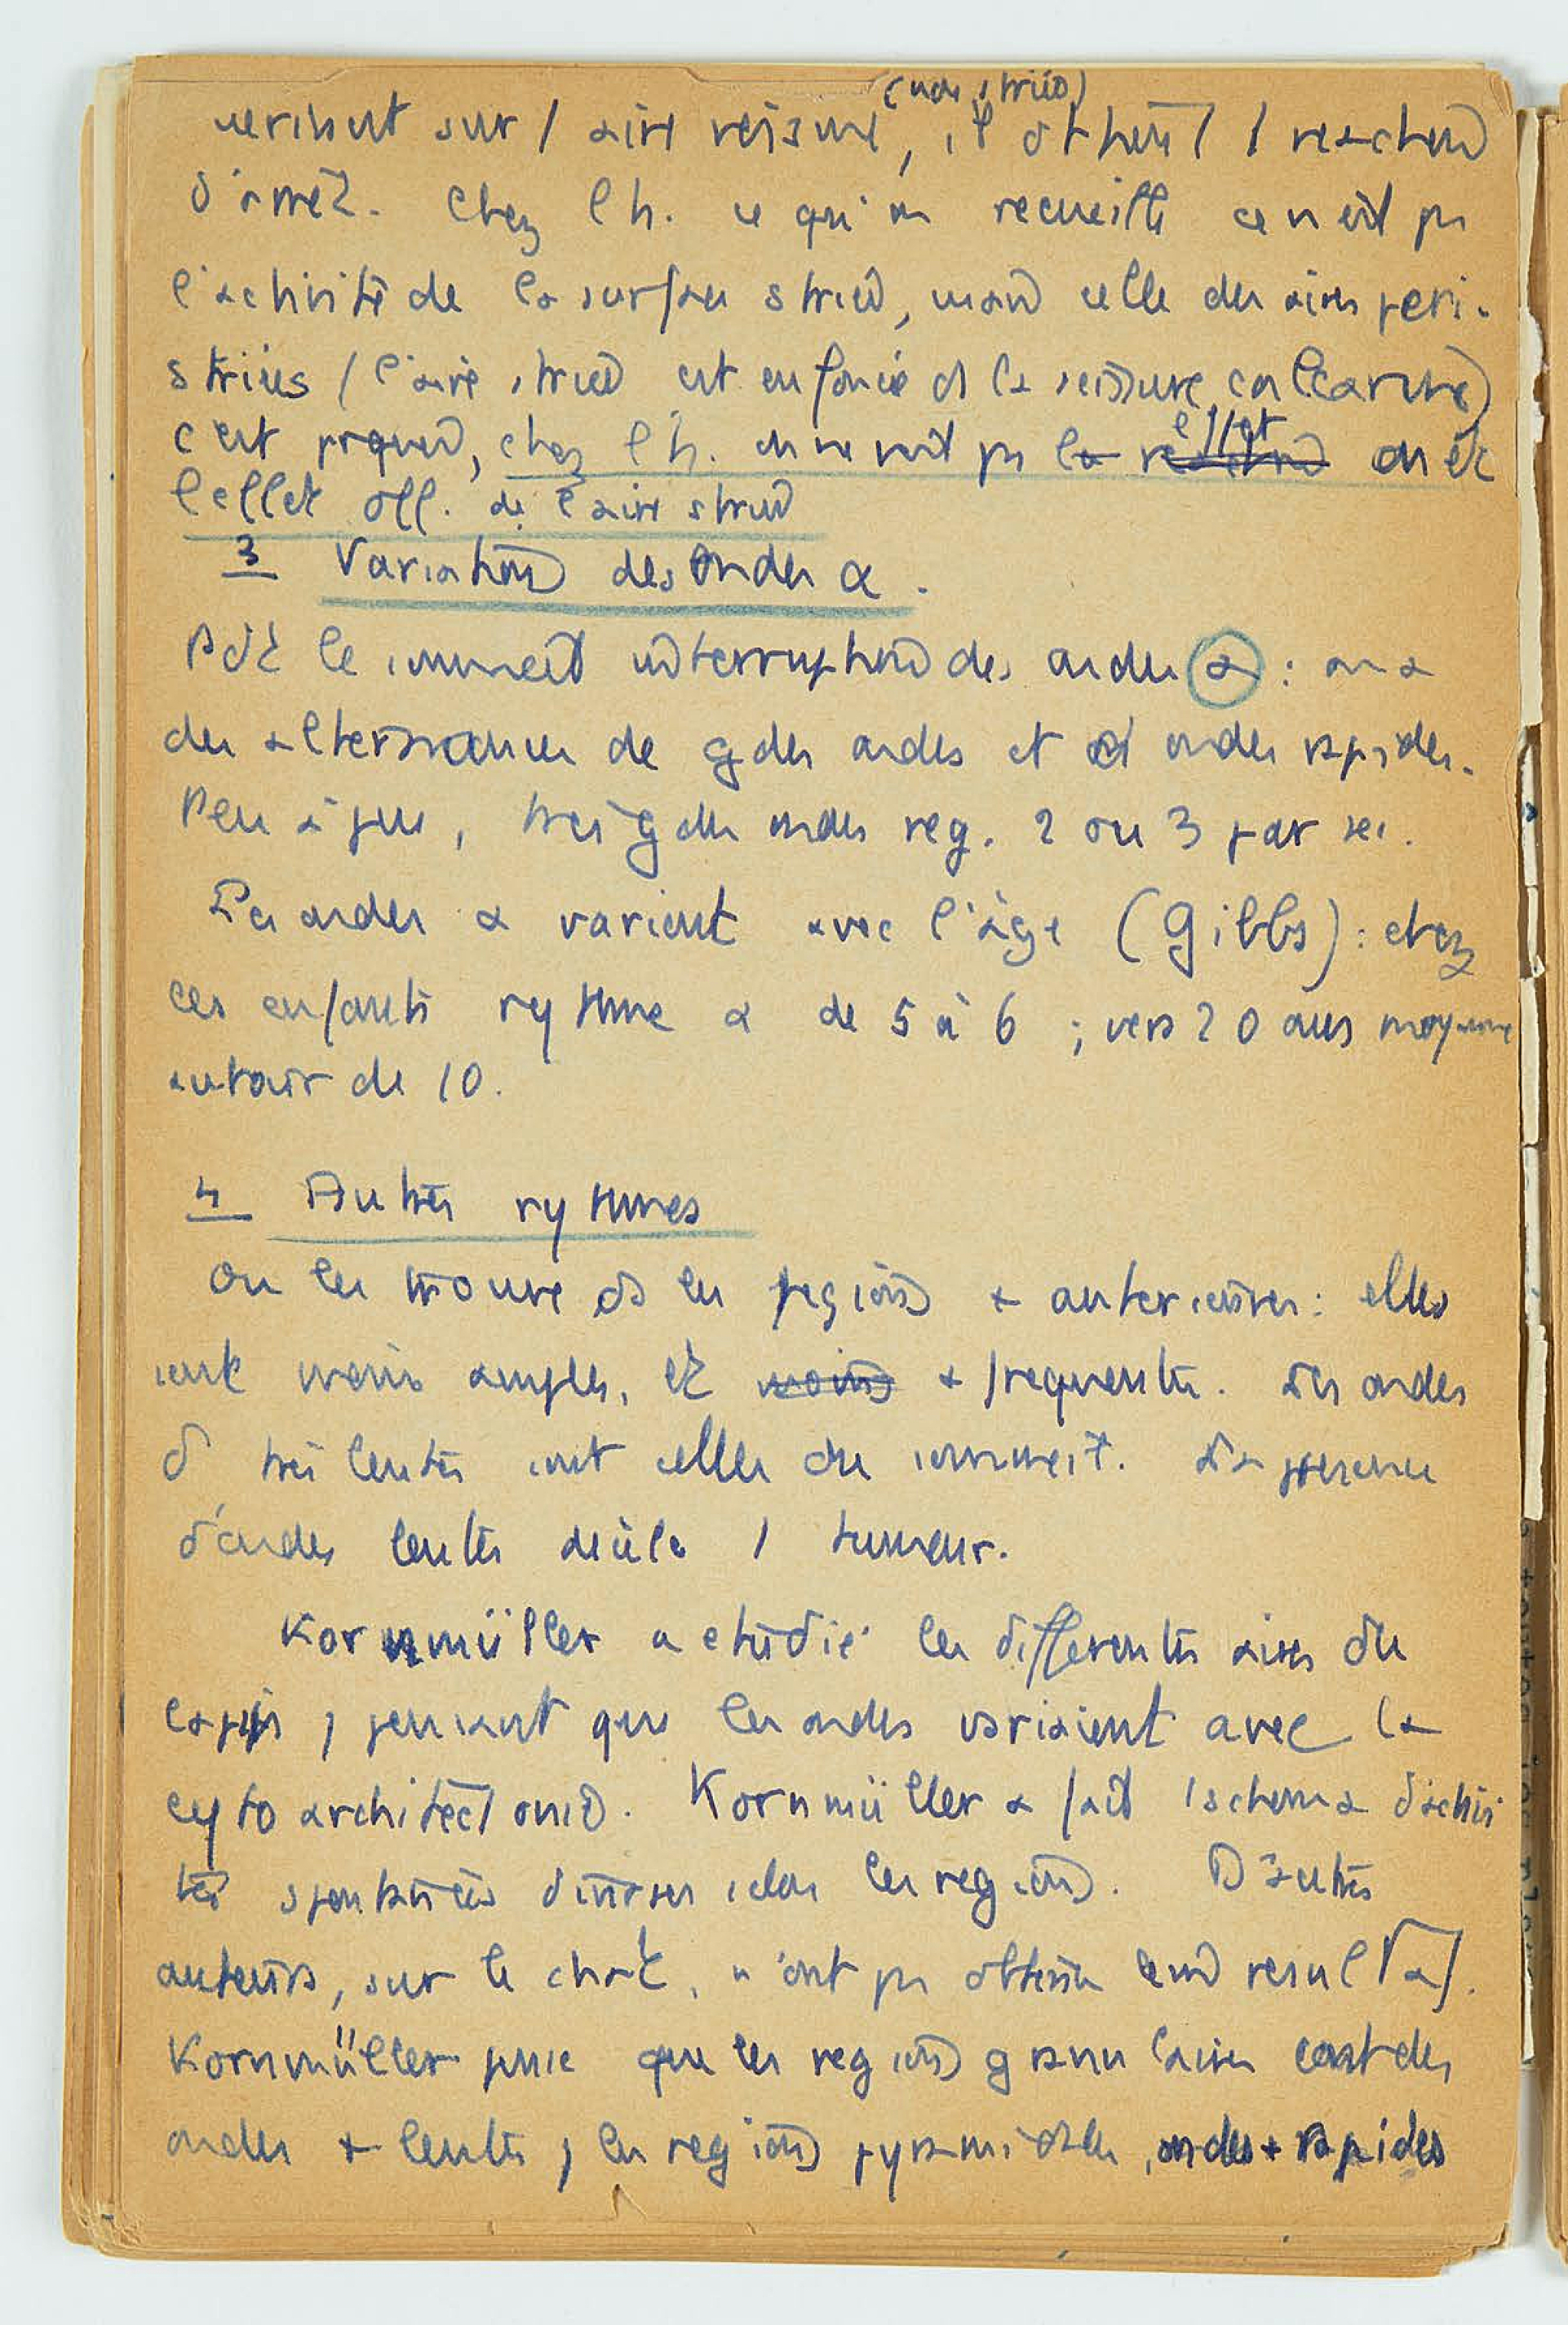 (non strié)
sur / aire voisine, il obtient / réaction
d'arrêt. Chez l h. ce qu'on recueille ce n'est ps
l'activité de la surface striée, mais celle des aires peri-
striées (l'aire striée est enfoncée ds la scissure calcarine)
c'est prquoi, chez l h. on ne voit ps la effet on et
l'effet off. de l'aire striée
3 Variations des ondes α.
Pdt le sommeil interruption des ondes α : on a
des alternances de gdes ondes et d'ondes rapides.
Peu à peu, très gdes ondes reg. 2 ou 3 par sec.
Les ondes α varient avec l'âge (Gibbs) : chez
les enfants rythme α de 5 à 6 ; vers 20 ans moyenne
autour de 10.
4 Autres rythmes
On les trouve ds les régions + antérieures : elles
sont moins amples, et moins + frequentes. Les ondes
δ très lentes sont celles du sommeil. La presence
d'ondes lentes décèle 1 tumeur.
Kornmüller a étudié les differentes aires du
lapin, pensant que les ondes variaient avec la
cytoarchitectonie. Kornmüller a fait 1 schema d'activi
tés spontanées diverses selon les régions. D'autres
auteurs, sur le chat, n'ont pu obtenir resultat.
Kornmüller pense que les régions granulaires ont des
ondes + lentes, les régions pyramidales, ondes + rapides